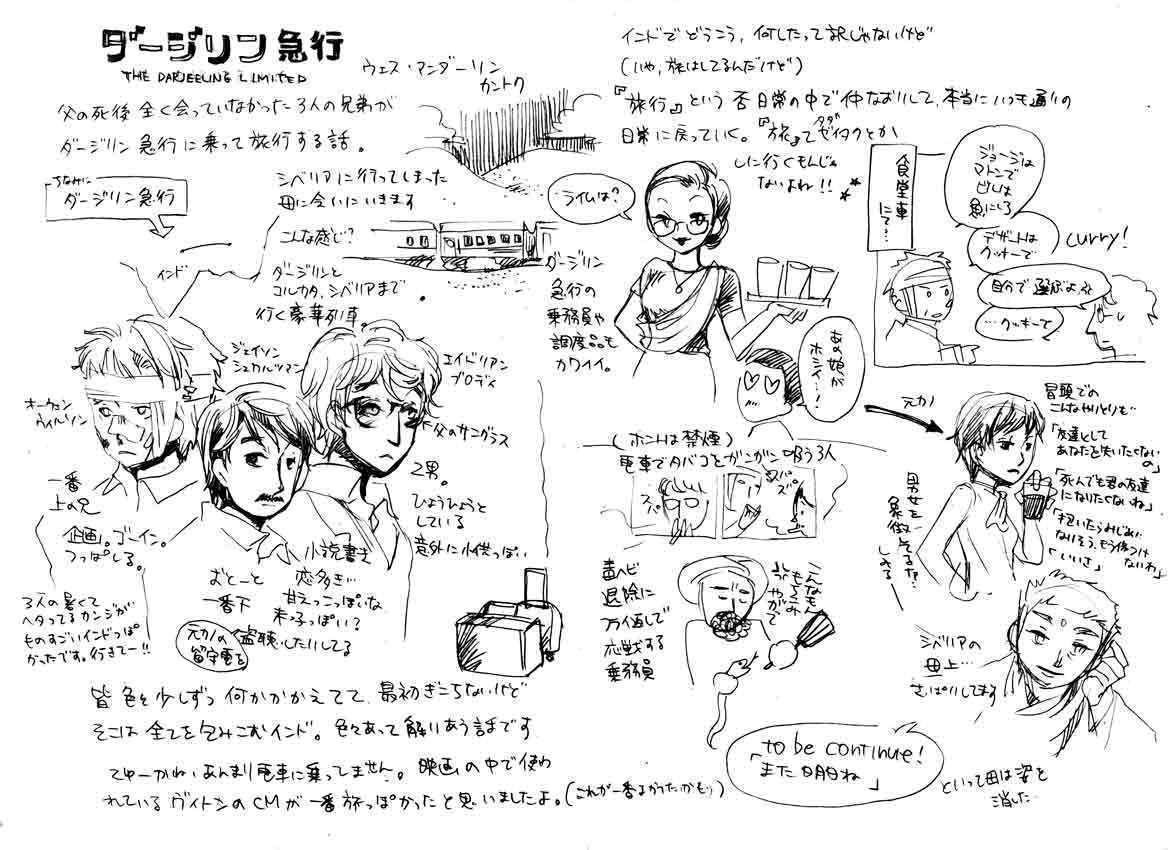 ダージリン急行
THE DARJEELING LIMITED
ウェス・アンダーソン
カントク
父の死後全く会っていなかった3人の兄弟が
ダージリン急行に乗って旅行する話。
ちなみに
ダージリン急行
インド
シベリアに行ってしまった
母に会いにいきます
こんな感じ?
ダージリンと
コルカタ、シベリアまで
行く豪華列車。
オーウェン
ウィルソン
ジェイソン
シュワルツマン
エイドリアン
ブロディ
父のサングラス
一番
上の兄
企画。ゴーイン。
つっぱしる。
2男。
ひょうひょうと
している
意外に子供っぽい
おとーと
一番下
小説書き
恋多き…
甘えっこっぽいな
末っ子っぽい?
元カノの
留守電を
盗聴したりしてる
3人の暑くて
ヘタってるカンジが
ものすごいインドっぽ
かったです。行きてー!!
皆色々少しずつ何かかかえてて、最初ぎこちないけど
そこは全てを包みこむインド。色々あって解りあう話です
てゆーかねぃあんまり電車に乗ってません。映画の中で使わ
れているヴィトンのCMが一番旅っぽかったと思いましたよ。(これが一番よかったかも)
インドでどうこう、何したって訳じゃないけど
(いや、旅はしてるんだけど)
『旅行』という非日常の中で仲なおりして、本当にいつも通りの
日常に戻っていく。『旅』てタダ ゼイタクとか
しに行くもんじゃ
ないよね!!
ライムは?
ダージリン
急行の
乗務員や
調度品も
カワイイ。
あの娘が
ホシイ…!
食堂車
にて…
ジョージは
マトンで
ピーターは
魚にしろ
デザートは
クッキーで
curry!
自分で選ぶよ
…クッキーで
(ホントは禁煙)
電車でタバコをガンガン吸う3人
スパ
スパスパ
毒ヘビ
退除に
乗務員
元カノ
冒頭での
こんなやりとりも…
「友達として
あなたを失いたくない
の」
「死んでも君の友達
になりたくないね」
「いいさ」
男女を
象徴
シベリアの
母上…
さっぱりしてます
to be continue!
「また明日ね」
といって母は姿を
消した…